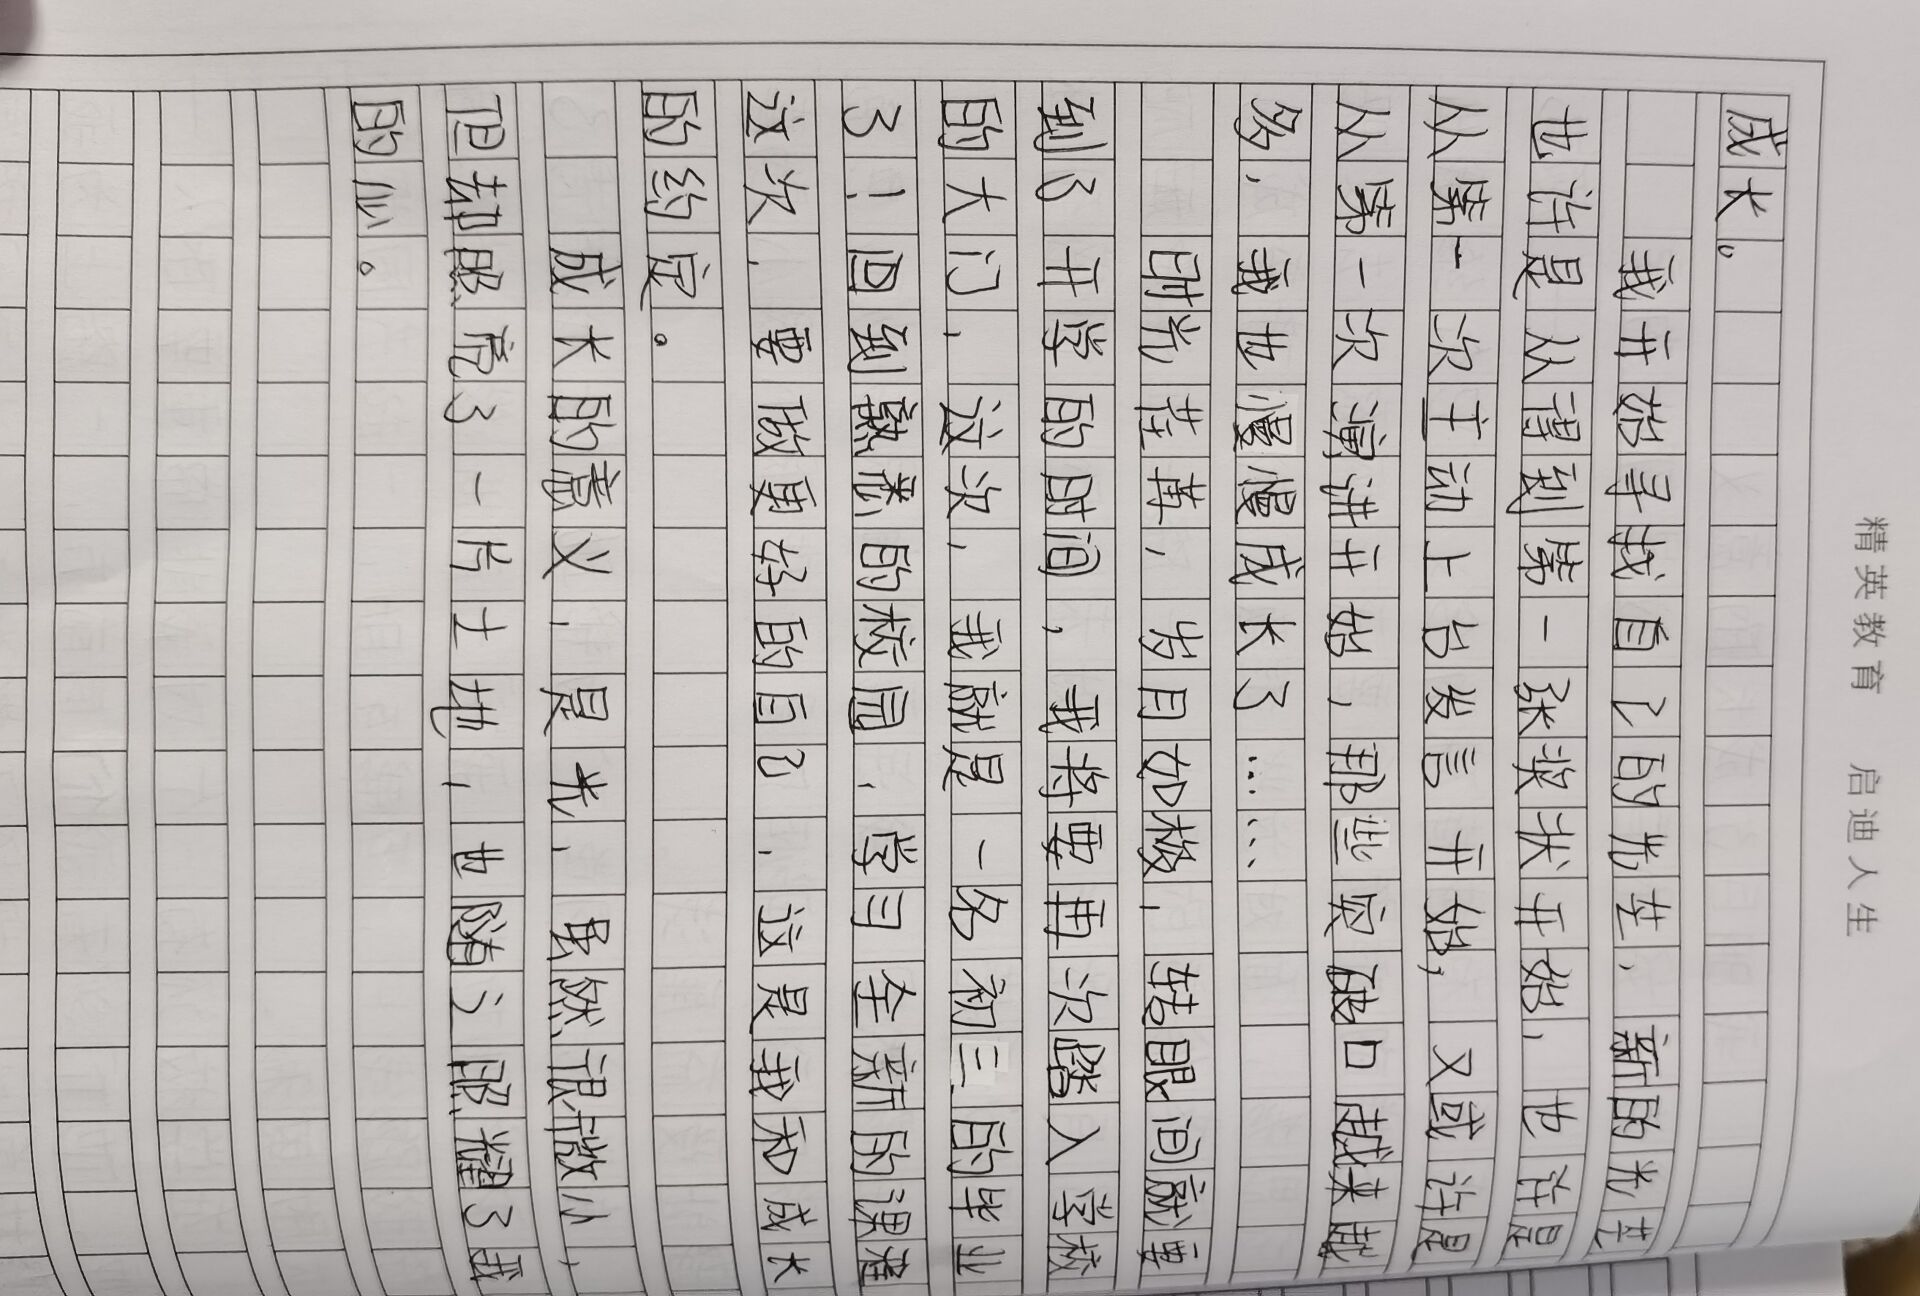 精英教育 启迪人生
成长。
我开始寻找自己的光芒，新的光芒
也许是从得到第一张奖状开始，也许是
从第一次主动上台发言开始，又或许是
从第一次演讲开始，那些突破口越来越
多，我也慢慢成长了……
时光荏苒，岁月如梭，转眼间就要
到了开学的时间，我将要再次踏入学校
的大门，这次，我就是一名初三的毕业
了！回到熟悉的校园，学习全新的课程
这次，要做更好的自己，这是我和成长
的约定。
成长的意义，是光，虽然很微小，
但却照亮了一片土地，也随之照耀了我
的心。